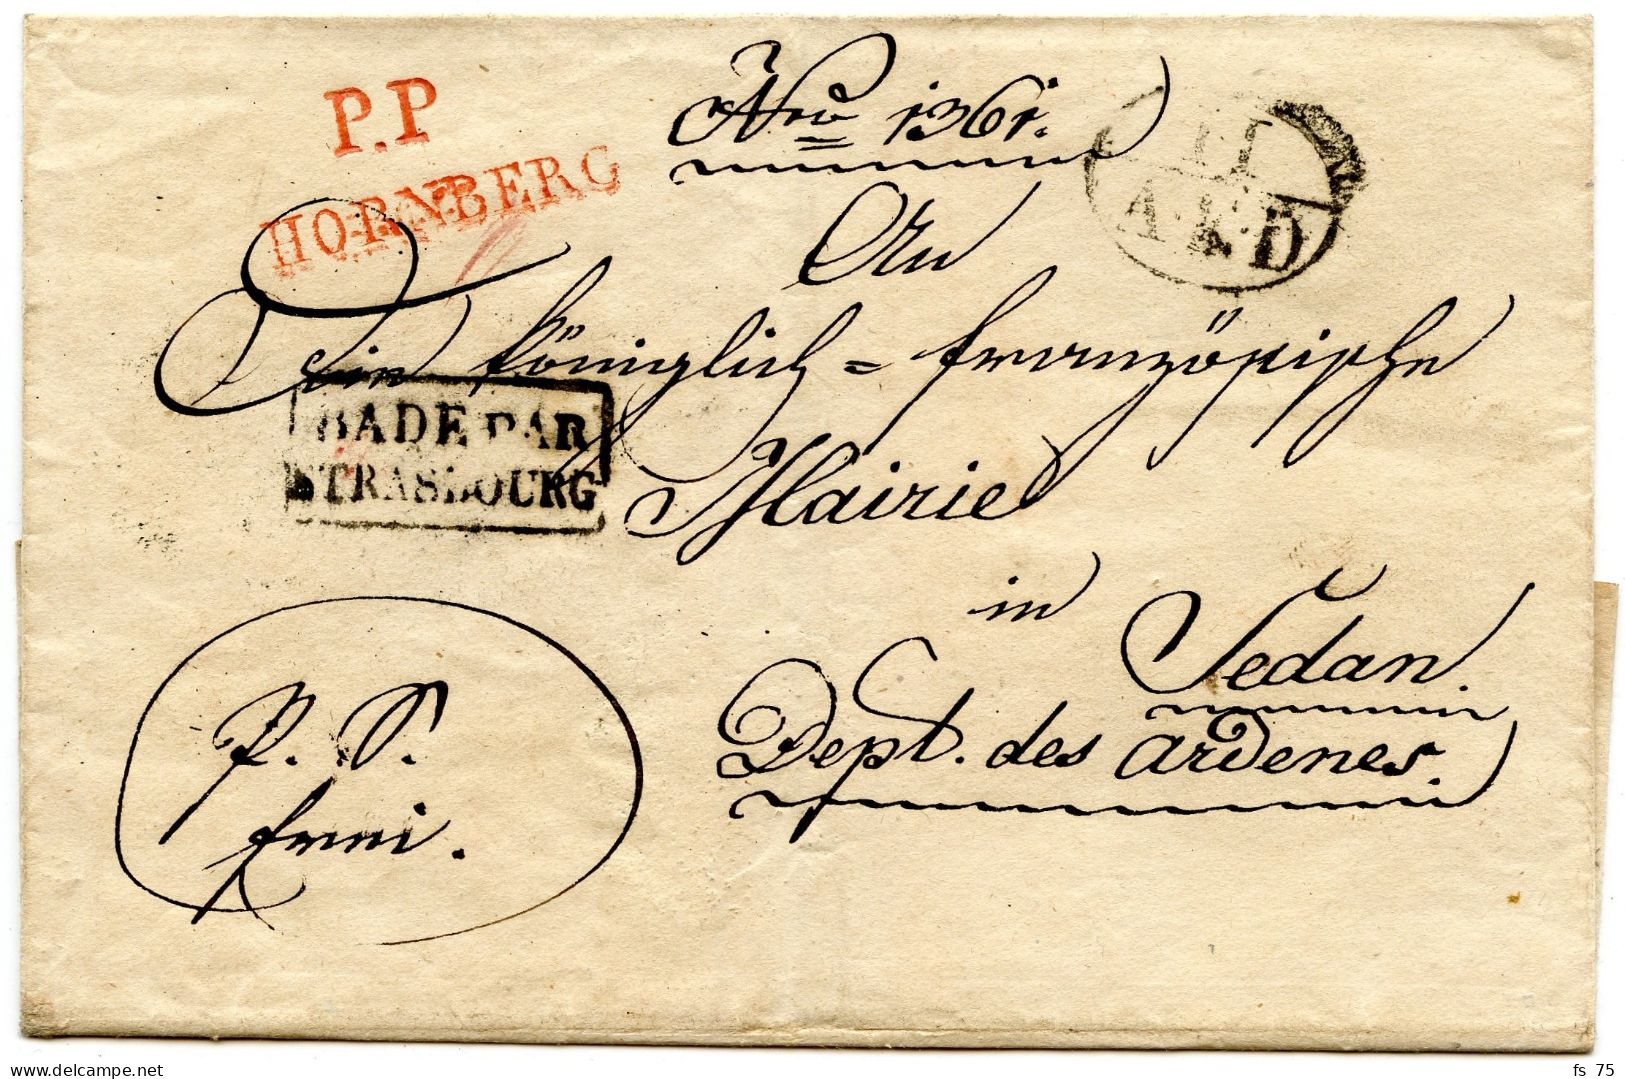 P.P
HORNBERG
Nro 1361.
11
A.E.D
An
Die königlich = französische
BADE PAR
STRASBOURG
Mairie
in
Sedan.
P. S.
frei.
Dept. des Ardenes.
fs 75